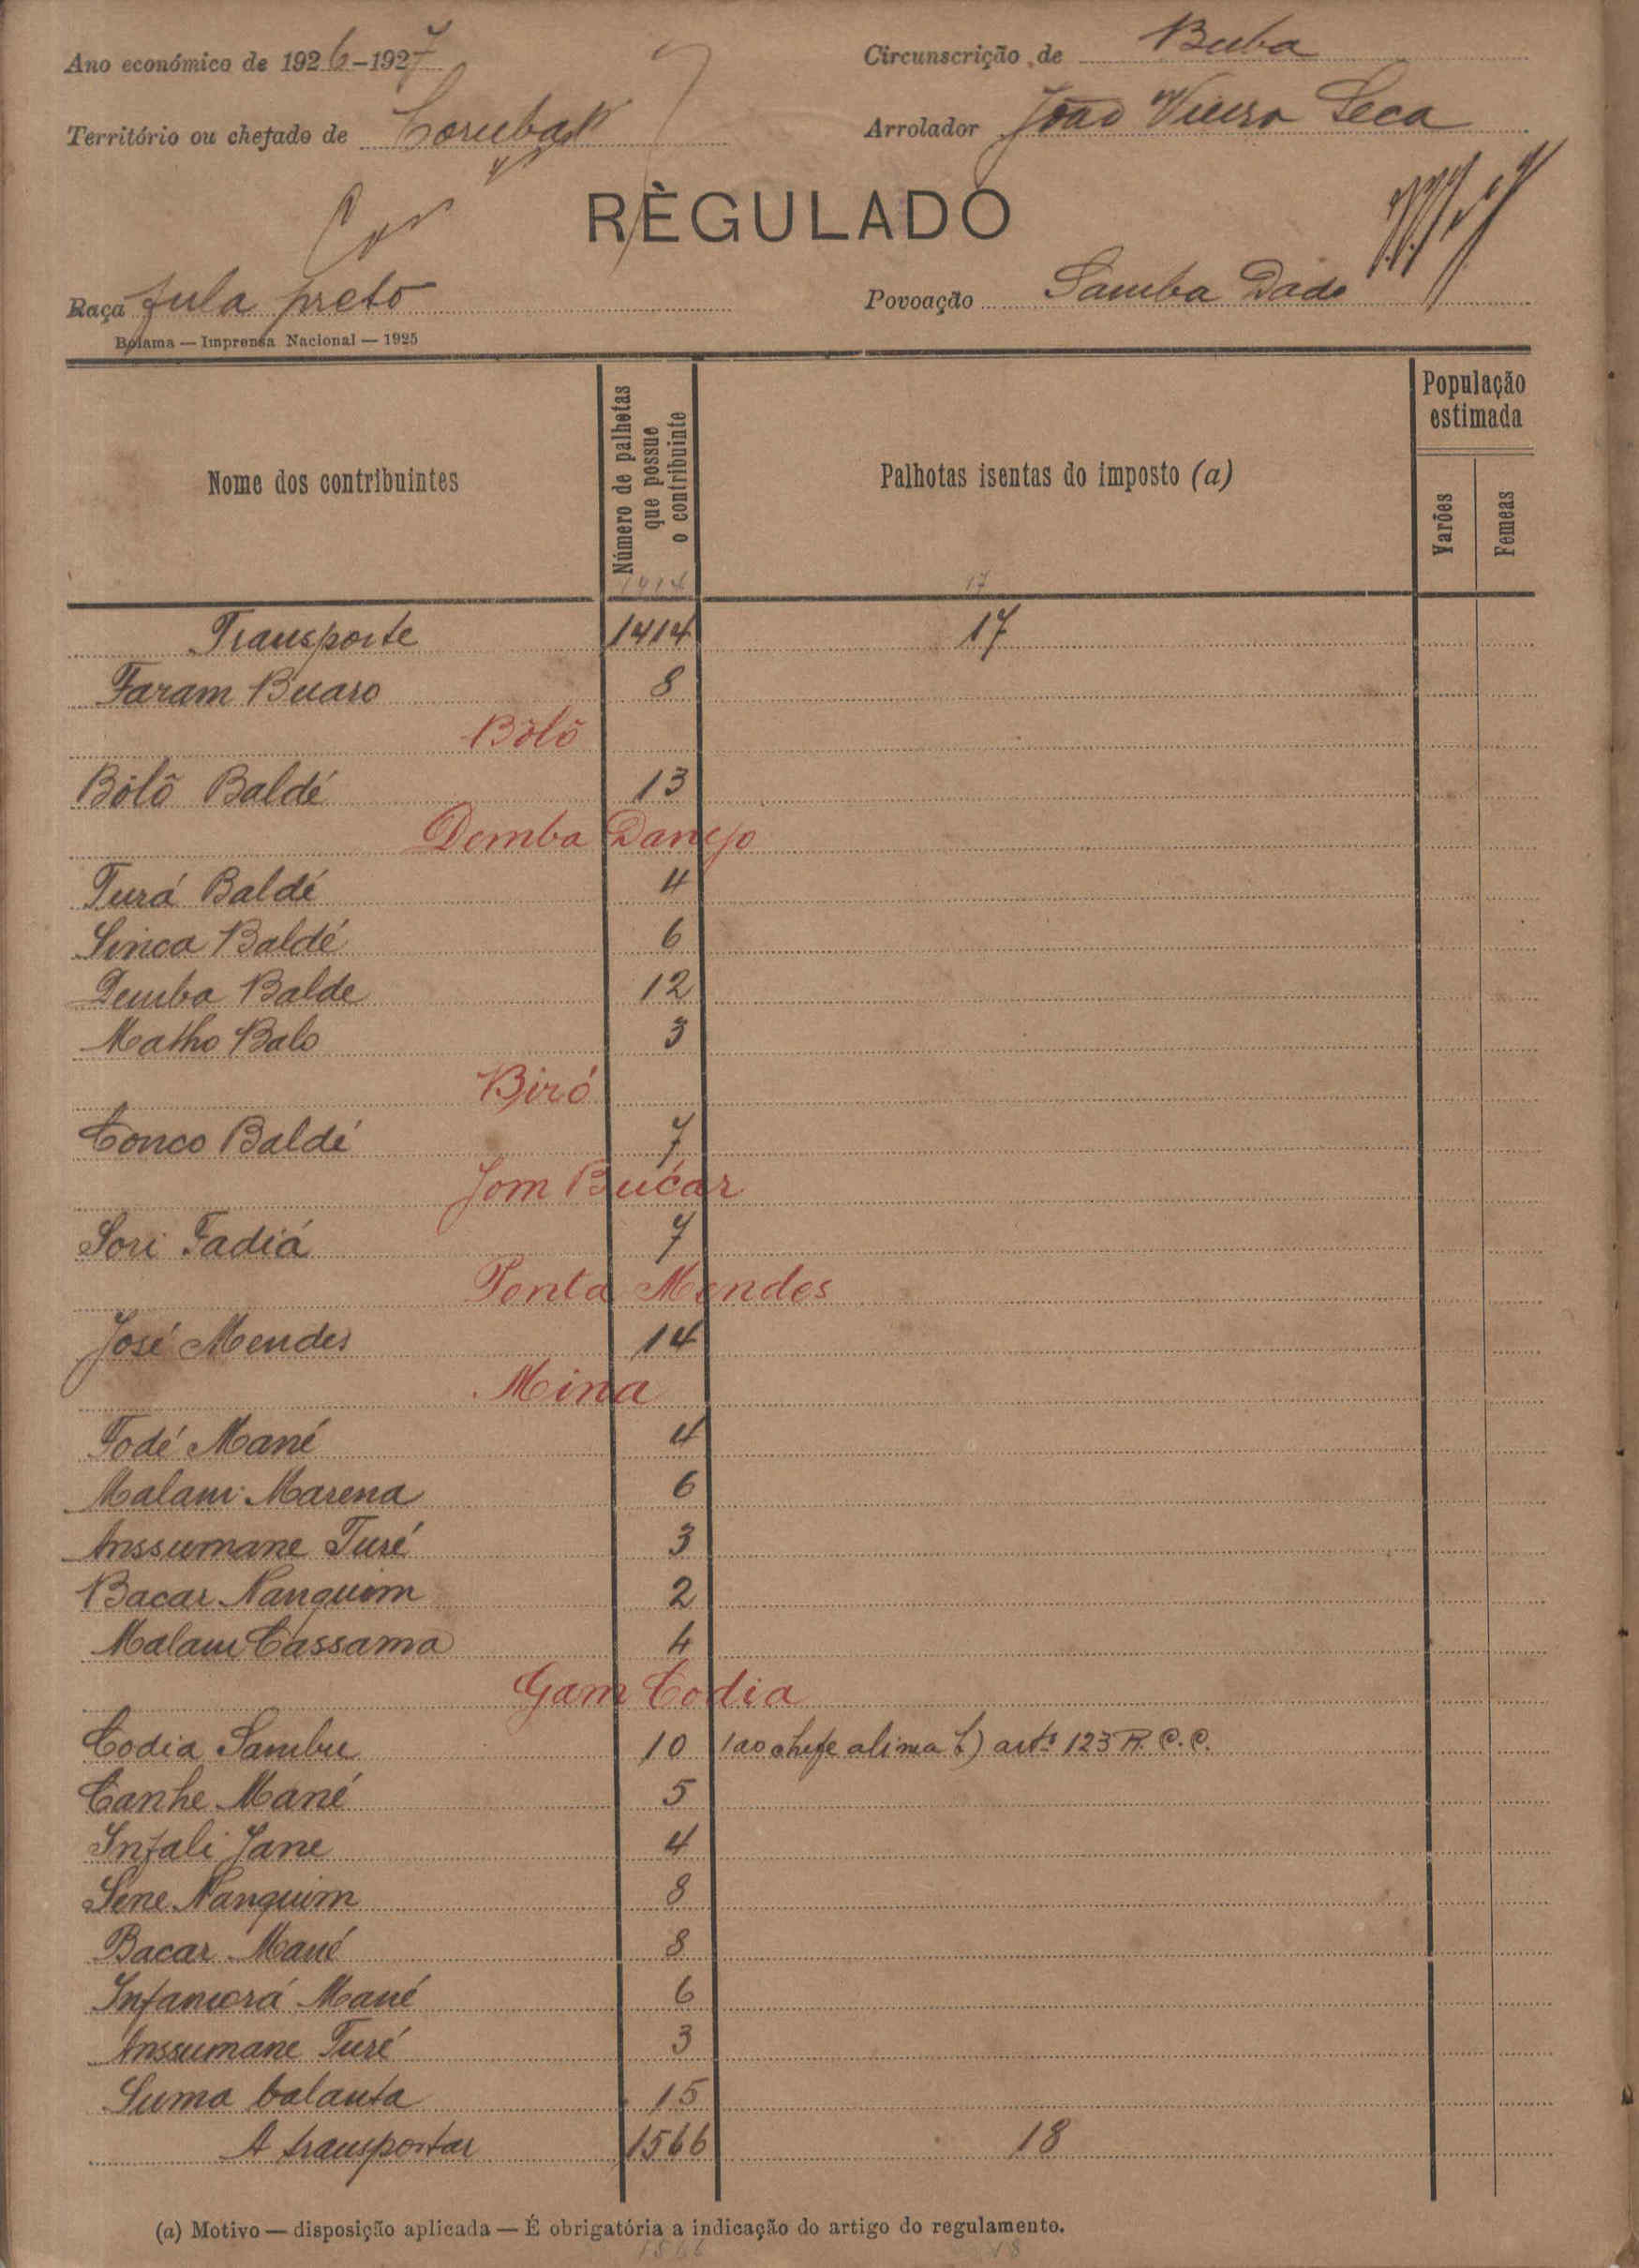 Ano económico de 1926-1927
Circunscrição de Buba
Território ou chefado de Corubal
Arrolador João Vieira Seca
RÈGULADO
Raça fula preto
Povoação Samba Dado
Bolama — Imprensa Nacional — 1925
Nome dos contribuintes
Número de palhotas que possue o contribuinte
Palhotas isentas do imposto (a)
População estimada
Varões
Femeas
1414 17
Transporte 1414 17
Faram Buaro 8
Bôlô
Bôlô Baldé 13
Demba Danejo
Turá Baldé 4
Sirica Baldé 6
Demba Balde 12
Matho Balo 3
Biró
Conco Baldé 7
Jom Bucar
Sori Fadiá 7
Ponta Mendes
José Mendes 14
Mina
Fodé Mané 4
Malam Marena 6
Anssumane Turé 3
Bacar Nanquim 2
Malam Cassama 4
Gam Codia
Codia Sambu 10 1 ao chefe alinea b) artº 123 R. C. C.
Canhe Mané 5
Infali Jane 4
Sene Nanquim 8
Bacar Mané 8
Infamorá Mané 6
Anssumane Turé 3
Suma balanta 15
A transportar 1566 18
(a) Motivo — disposição aplicada — É obrigatória a indicação do artigo do regulamento.
1566 18